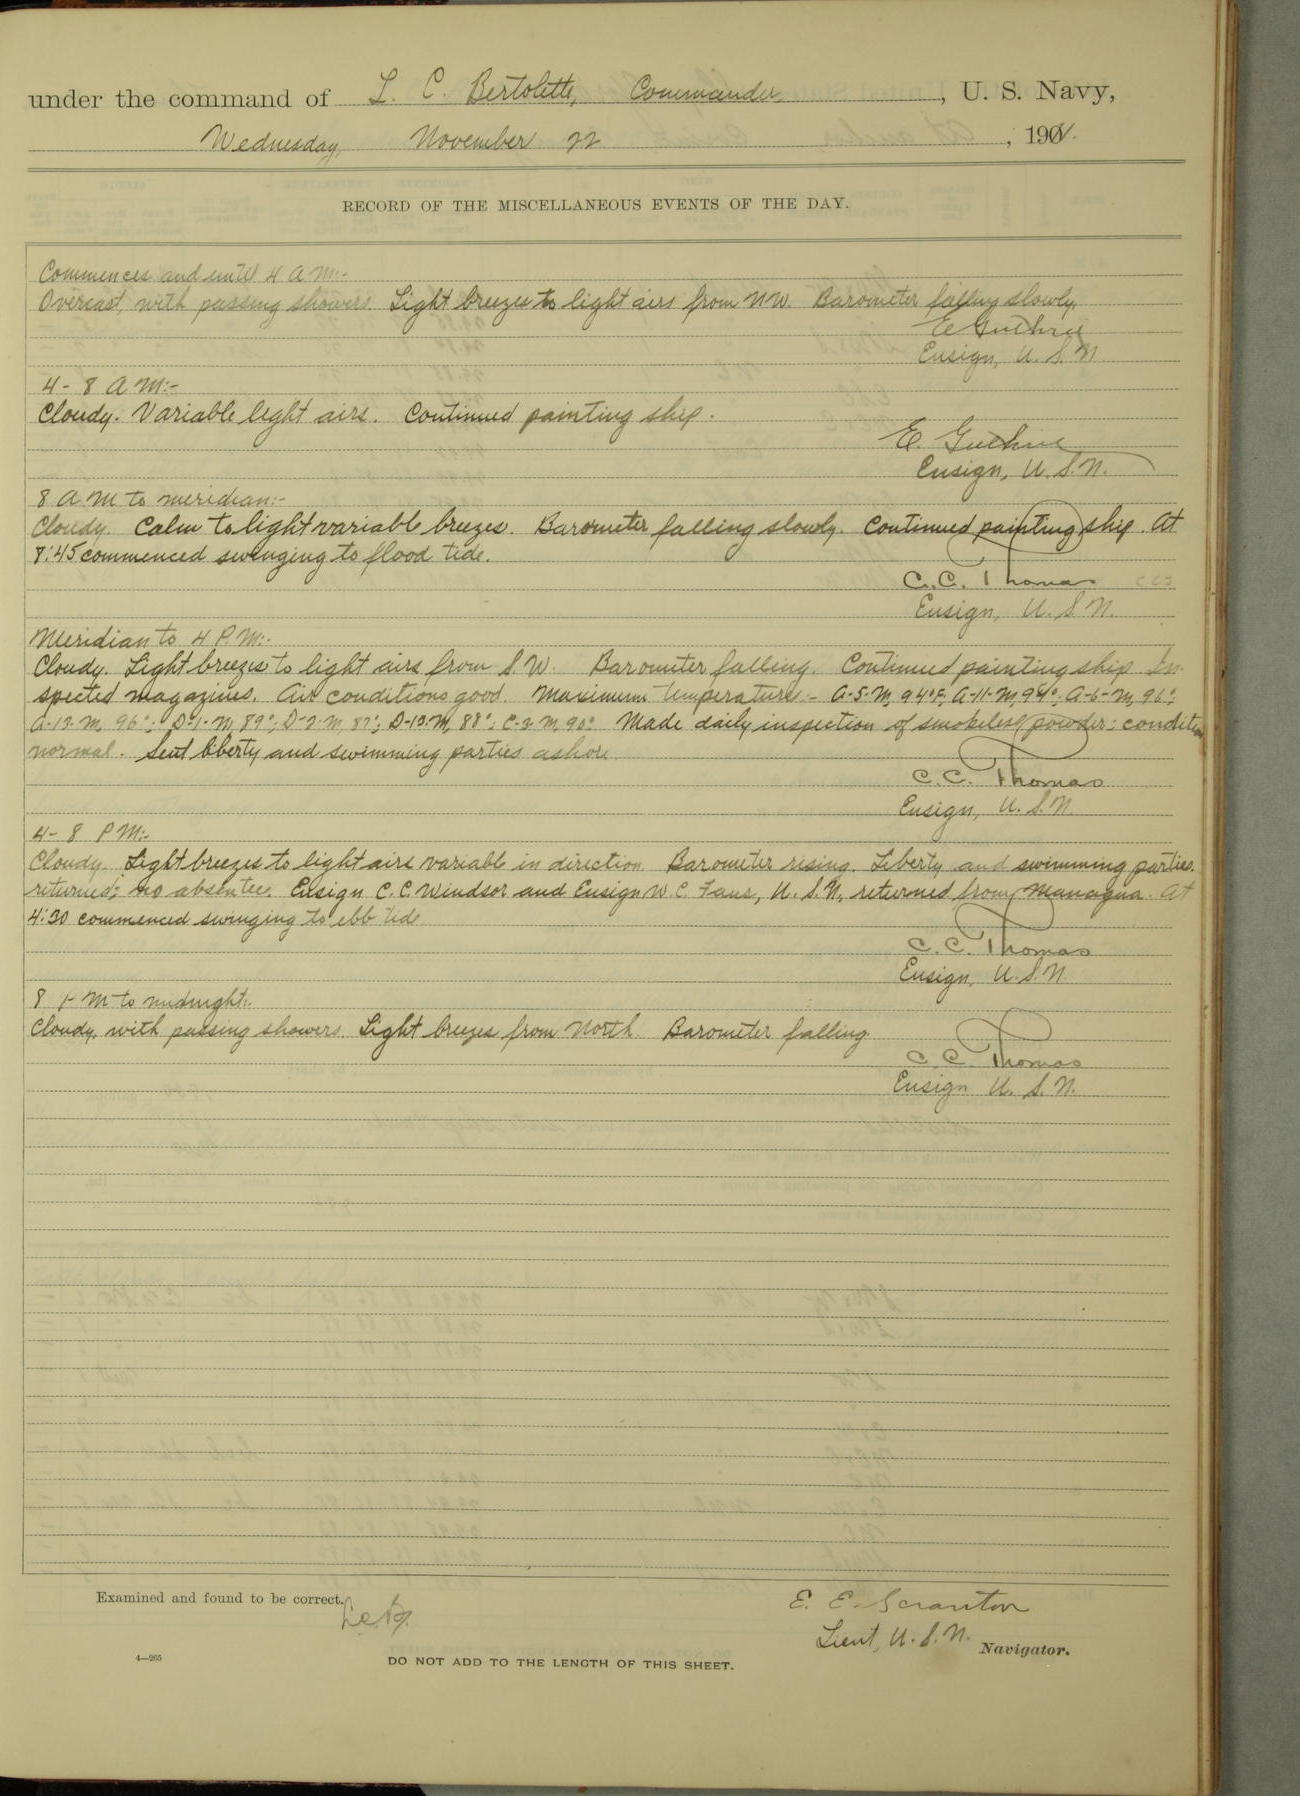 under the command of L. C. Bertolette, Commander, U. S. Navy,
Wednesday, November 22, 1901.
RECORD OF THE MISCELLANEOUS EVENTS OF THE DAY.
Commences and until 4 A M:-
Overcast, with passing showers. Light breezes to light airs from NW. Barometer falling slowly.
E Guthrie
Ensign, U. S. N
4 - 8 A M:-
Cloudy. Variable light airs. Continued painting ship.
E. Guthrie
Ensign, U. S. N.
8 A M to meridian:-
Cloudy. Calm to light variable breezes. Barometer falling slowly. Continued painting ship. At
8:45 commenced swinging to flood tide.
C. C. Thomas
Ensign, U. S. N.
Meridian to 4 P. M:-
Cloudy. Light breezes to light airs from S. W. Barometer falling. Continued painting ship. In-
spected magazines. Air conditions good. Maximum temperature:- A-5-M, 94°F, A-11-M, 94°; A-6-M, 96°;
A-13-M, 96°; D-1-M, 89°; D-2-M, 87°; D-13-M, 88°; C-3-M, 90°. Made daily inspection of smokeless powder: condition
normal. Sent liberty and swimming parties ashore.
C. C. Thomas
Ensign, U. S. N.
4 - 8 P M:-
Cloudy. Light breezes to light airs variable in direction. Barometer rising. Liberty and swimming parties.
returned; no absentee. Ensign C. C. Windsor and Ensign W. C. Faus, U. S. N., returned from Managua. At
4:30 commenced swinging to ebb tide
C. C. Thomas
Ensign, U. S. N.
8 P M to midnight:-
Cloudy, with passing showers. Light breezes from North. Barometer falling
C. C. Thomas
Ensign U. S. N.
Examined and found to be correct.
E. E. Scranton
Lieut, U. S. N. Navigator.
4—265
DO NOT ADD TO THE LENGTH OF THIS SHEET.